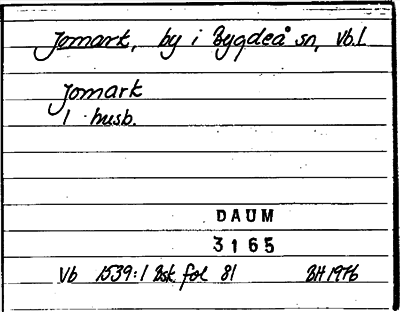 Jomark, by i Bygdeå sn, Vb. l
Jomark
1 husb.
DAUM
3165
Vb 1539:1 Bsk. fol 81 BH 1976